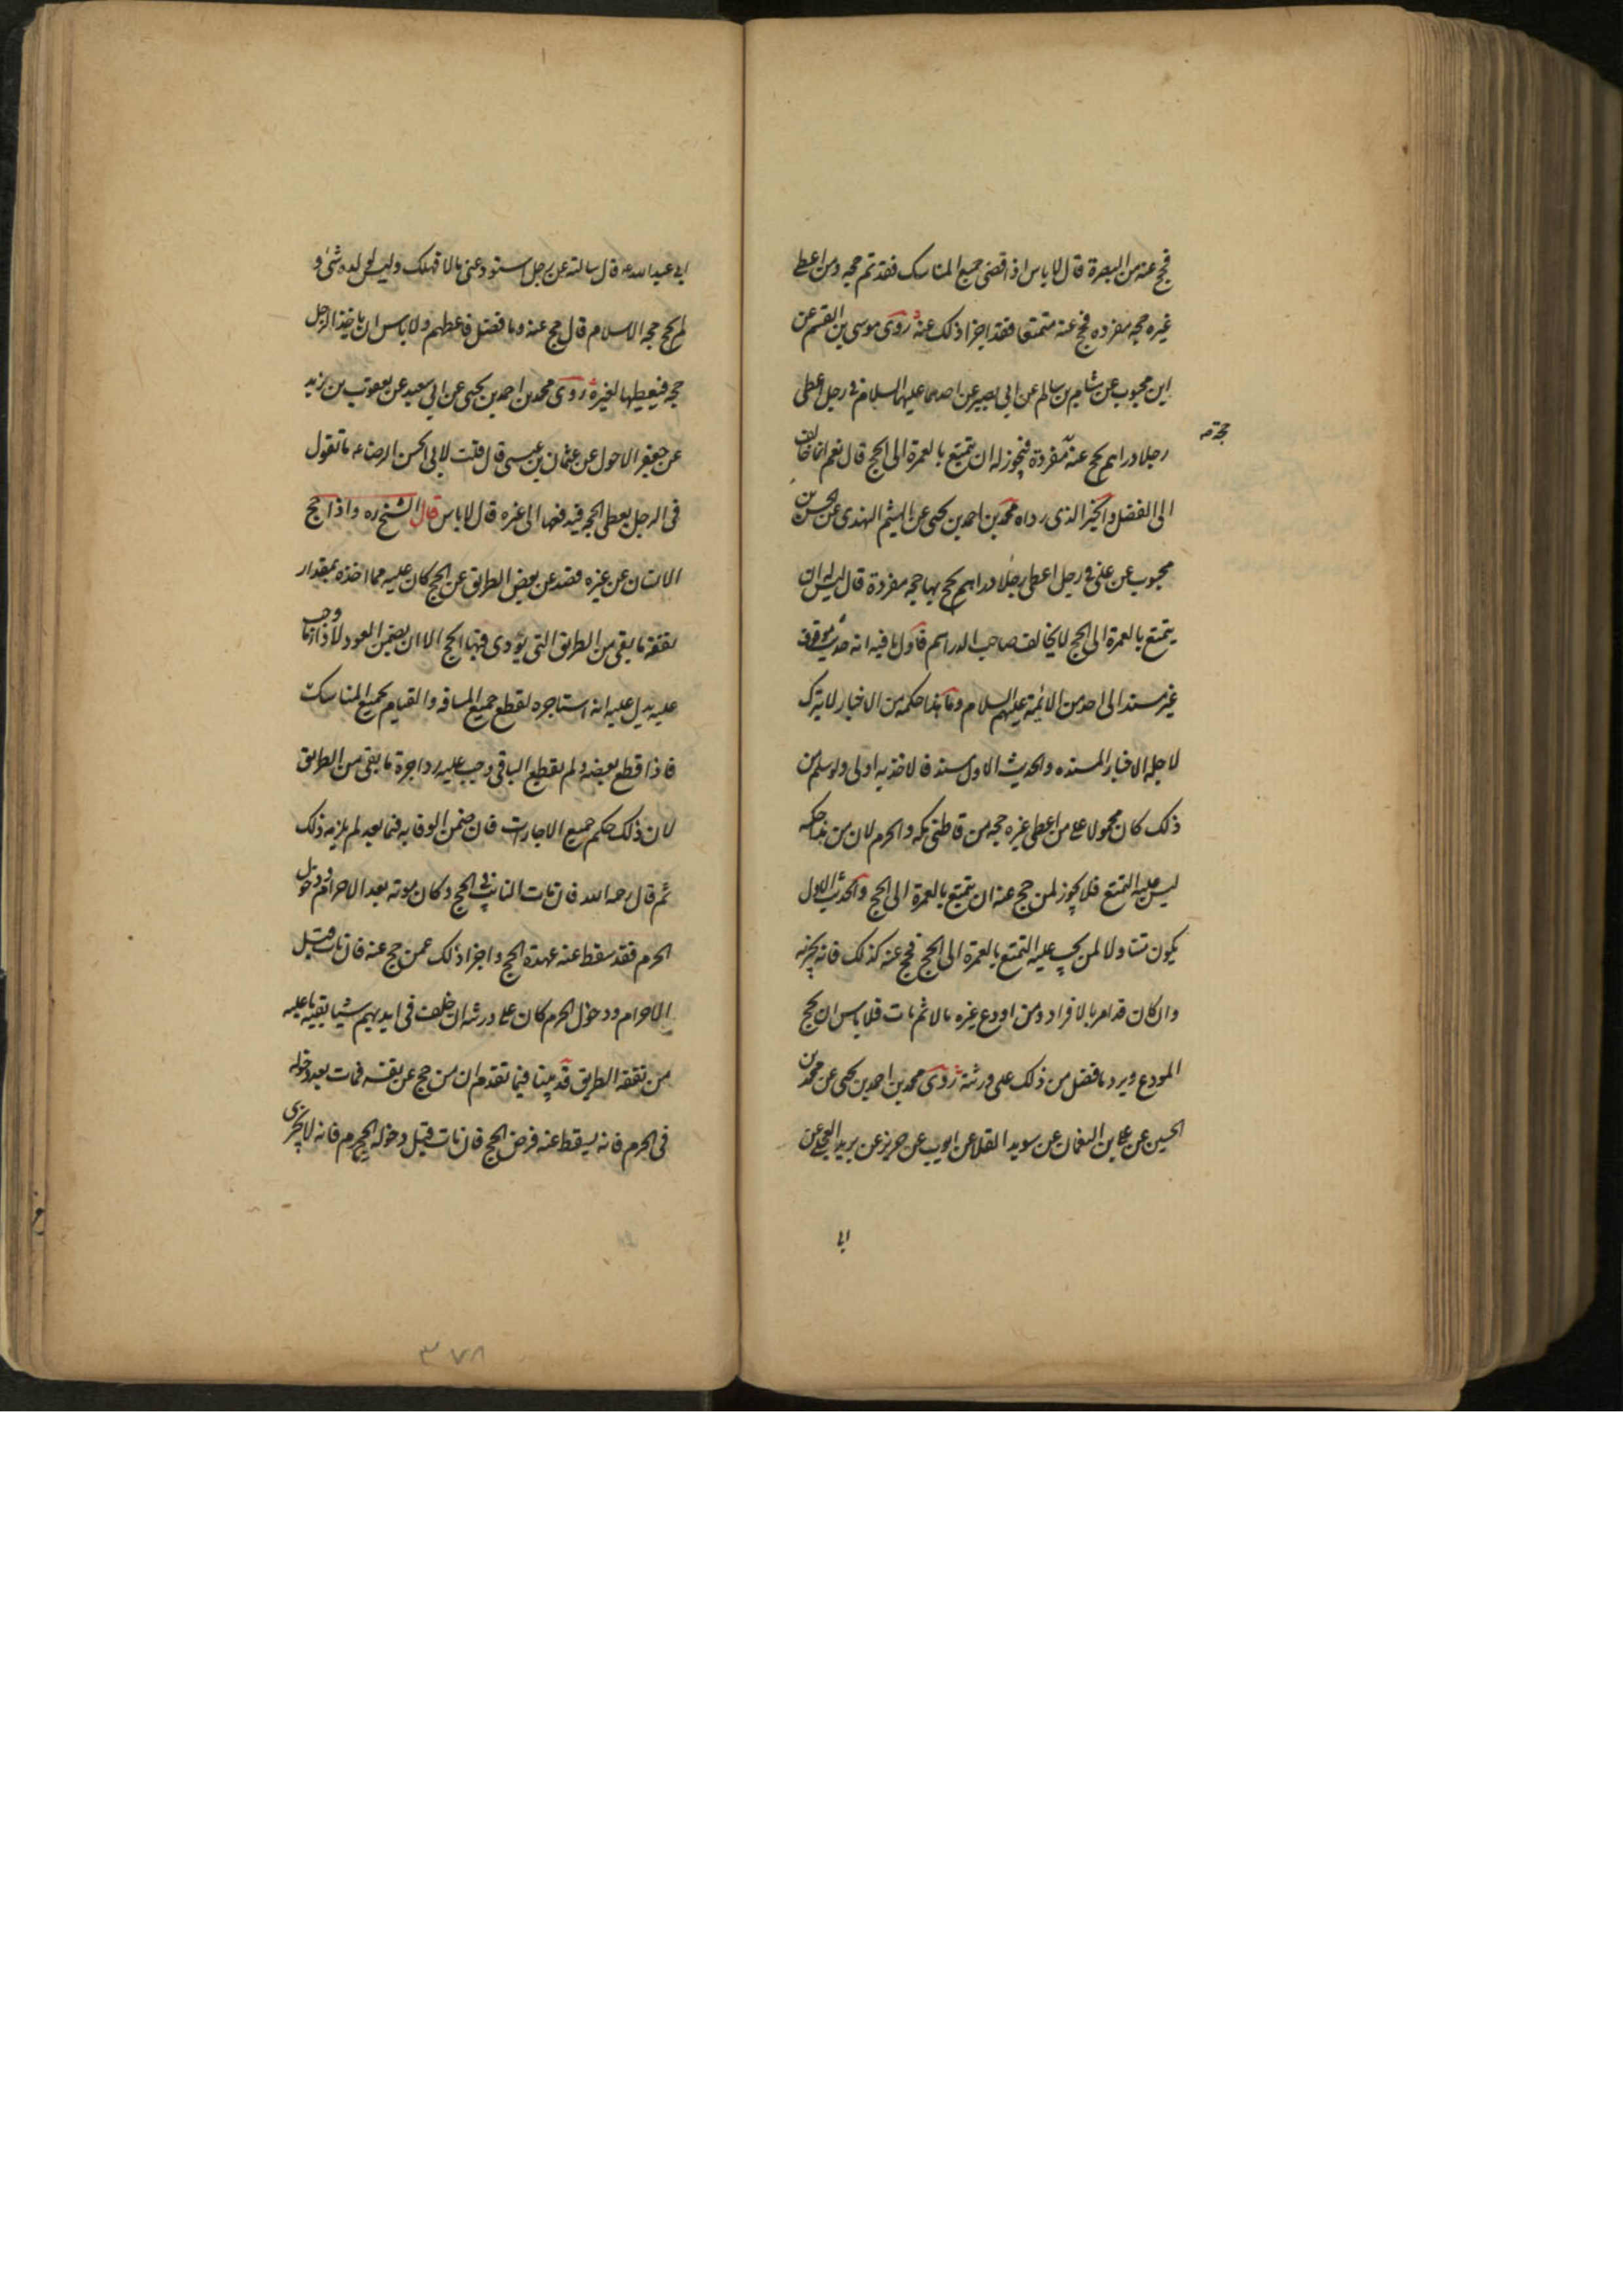 فحج عنه من البصرة قال لا باس اذا قضى جميع المناسك فقد تم حجه ومن اعطى
غيره حجه مفرده فحج عنه متمتعا فقد اجزا ذلك عنه روى موسى بن القسم عن
ابن محبوب عن هشام بن سالم عن ابى بصير عن احدهما عليهما السلام فى رجل اعطى
حجة صه
رجلا دراهم يحج عنه مفردة فيجوز له ان يتمتع بالعمرة الى الحج قال نعم انما خالف
الى الفضل والخبر الذى رواه محمد بن احمد بن يحيى عن الهيثم النهدى عن الحسن بن
محبوب عن على فى رجل اعطى رجلا دراهم يحج بها حجه مفردة قال ليس له ان
يتمتع بالعمرة الى الحج لا يخالف صاحب الدراهم فاول ما فيه انه حديث موقوف
غير مسند الى احد من الائمة عليهم السلام وما هذا حكمه من الاخبار لا يترك
لاجله الاخبار المسنده والحديث الاول مسند فالاخذ به اولى ولو سلم من
ذلك كان محمولا على من اعطى غيره حجه من قاطنى مكه والحرم لان من هذا حكمه
ليس عليه التمتع فلا يجوز لمن حج عنه ان يتمتع بالعمرة الى الحج والحديث الاول
يكون متناولا لمن يجب عليه التمتع بالعمرة الى الحج فحج عنه كذلك فانه يجزيه
وان كان قد امر بالافراد ومن اودع غيره مالا ثم مات فلا باس ان يحج
المودع ويرد ما فضل من ذلك على ورثته روى محمد بن احمد بن يحيى عن محمد بن
الحسين عن على بن النعمان عن سويد القلا عن ايوب عن حريز عن بريد العجلى عن
ابى
ابى عبد الله ع قال سالته عن رجل استودعنى مالا فهلك وليس لولده شئ و
لم يحج حجه الاسلام قال حج عنه وما فضل فاعطهم ولا باس ان ياخذ الرجل
حجه فيعطيها لغيره روى محمد بن احمد بن يحيى عن ابى سعيد عن يعقوب بن يزيد
عن جعفر الاحول عن عثمان بن عيسى قال قلت لابى الحسن الرضا ع ما تقول
فى الرجل يعطى الحجه فيدفعها الى غيره قال لا باس قال الشيخ ره واذا حج
الانسان عن غيره فصد عن بعض الطريق عن الحج كان عليه مما اخذه بمقدار
نفقة ما بقى من الطريق التى يؤدى فيها الحج الا ان يضمن العود لاداء ما وجب
عليه يدل عليه انه استاجره لقطع جميع المسافه والقيام بجميع المناسك
فاذا قطع بعضه ولم يقطع الباقى وجب عليه رد اجرة ما بقى من الطريق
لان ذلك حكم جميع الاجارات فان ضمن الوفا به فيما بعد لم يلزمه ذلك
ثم قال رحمه الله فان مات النائب فى الحج وكان موته بعد الاحرام ودخول
الحرم فقد سقط عنه عهدة الحج واجزا ذلك عمن حج عنه فان مات قبل
الاحرام ودخول الحرم كان على ورثته ان خلف فى ايديهم شيا بقيه ما عليه
من نفقه الطريق قد بينا فيما تقدم ان من حج عن نفسه فمات بعد دخوله
فى الحرم فانه يسقط عنه فرض الحج فان مات قبل دخوله الحرم فانه لا يجزى
٣٧٨